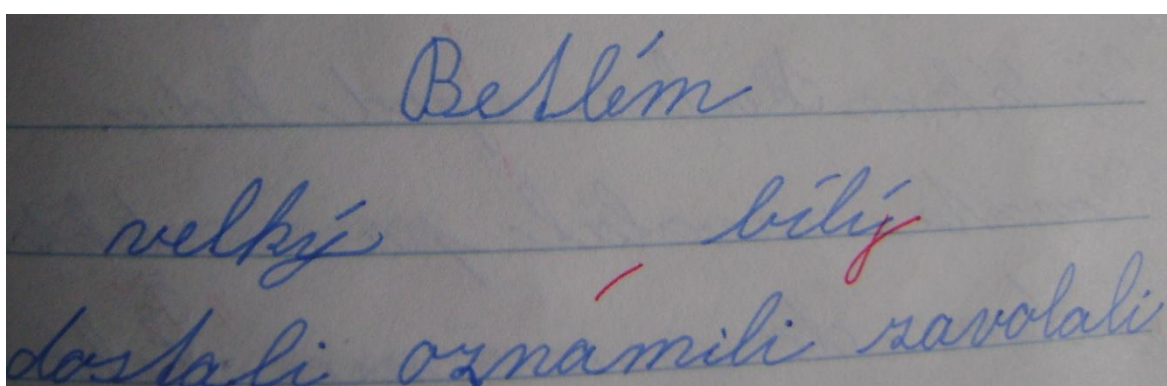 Betlém
velký bílý
dostali oznámili zavolali